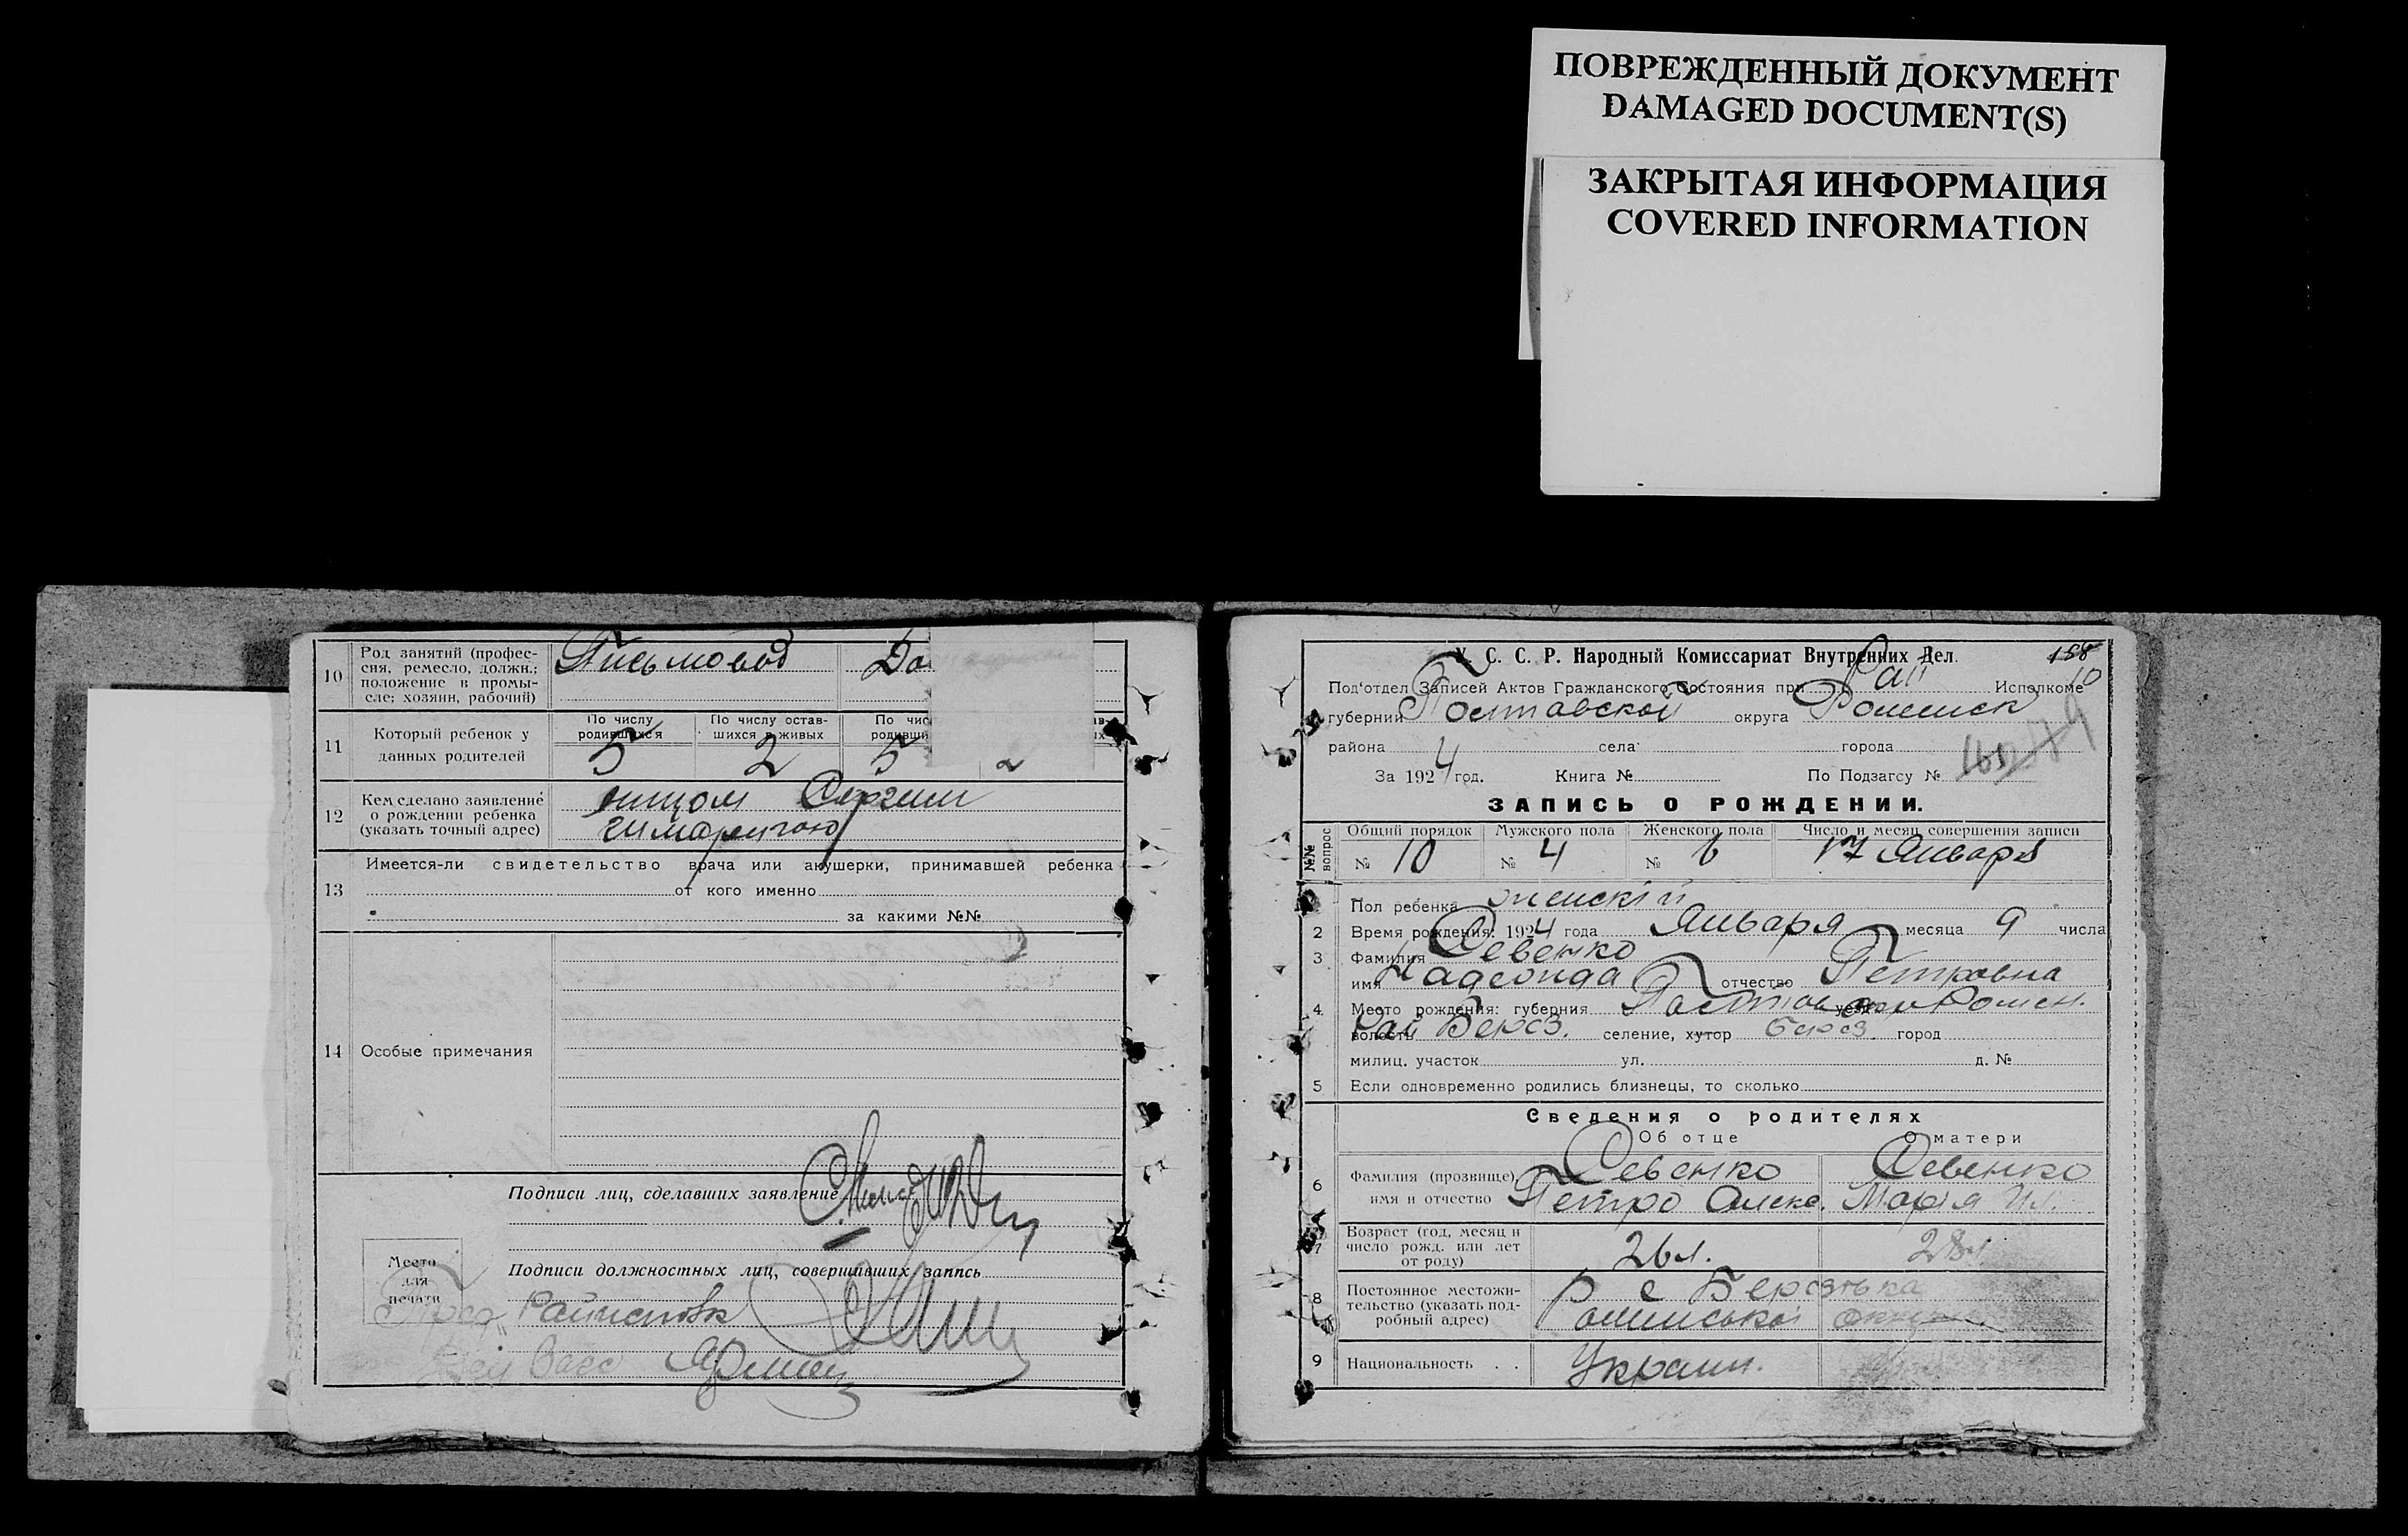 ПОВРЕЖДЕННЫЙ ДОКУМЕНТ
DAMAGED DOCUMENT(S)
ЗАКРЫТАЯ ИНФОРМАЦИЯ
COVERED INFORMATION
10 Род занятий (профес-
сия, ремесло, должн.;
положение в промы-
сле: хозяин, рабочий)
Письмовод
11 Который ребенок у
данных родителей
По числу
родившихся
5
По числу остав-
шихся в живых
2
По чис
родивши
5
2
12 Кем сделано заявление
о рождении ребенка
(указать точный адрес)
Сергием
13 Имеется-ли свидетельство врача или акушерки, принимавшей ребенка
от кого именно
за какими №№
14 Особые примечания
Подписи лиц, сделавших заявление
Место
для
печати
Подписи должностных лиц, совершивших запись
У. С. С. Р. Народный Комиссариат Внутренних Дел. 158
Под'отдел Записей Актов Гражданского Состояния при Рай Исполкоме 10
губернии Полтавской округа Роменск
района села города
За 1924 год. Книга № По Подзагсу №
ЗАПИСЬ О РОЖДЕНИИ.
№№ вопрос Общий порядок Мужского пола Женского пола Число и месяц совершения записи
№ 10 № 4 № 6 17 Января
Пол ребенка женскій
2 Время рождения: 1924 года Января месяца 9 числа
3 Фамилия Левенко
имя отчество Петровна
4 Место рождения: губерния уезд Ромен.
волость Рай Берез. селение, хутор Берез. город
милиц. участок ул. д. №
5 Если одновременно родились близнецы, то сколько
Сведения о родителях
Об отце О матери
6 Фамилия (прозвище), Левенко Левенко
имя и отчество Петро Алекс. Марія
7 Возраст (год, месяц и
число рожд. или лет
от роду)
26 л. 28 л.
8 Постоянное местожи-
тельство (указать под-
робный адрес)
с Березівка
Роменської
9 Национальность . . Украин.